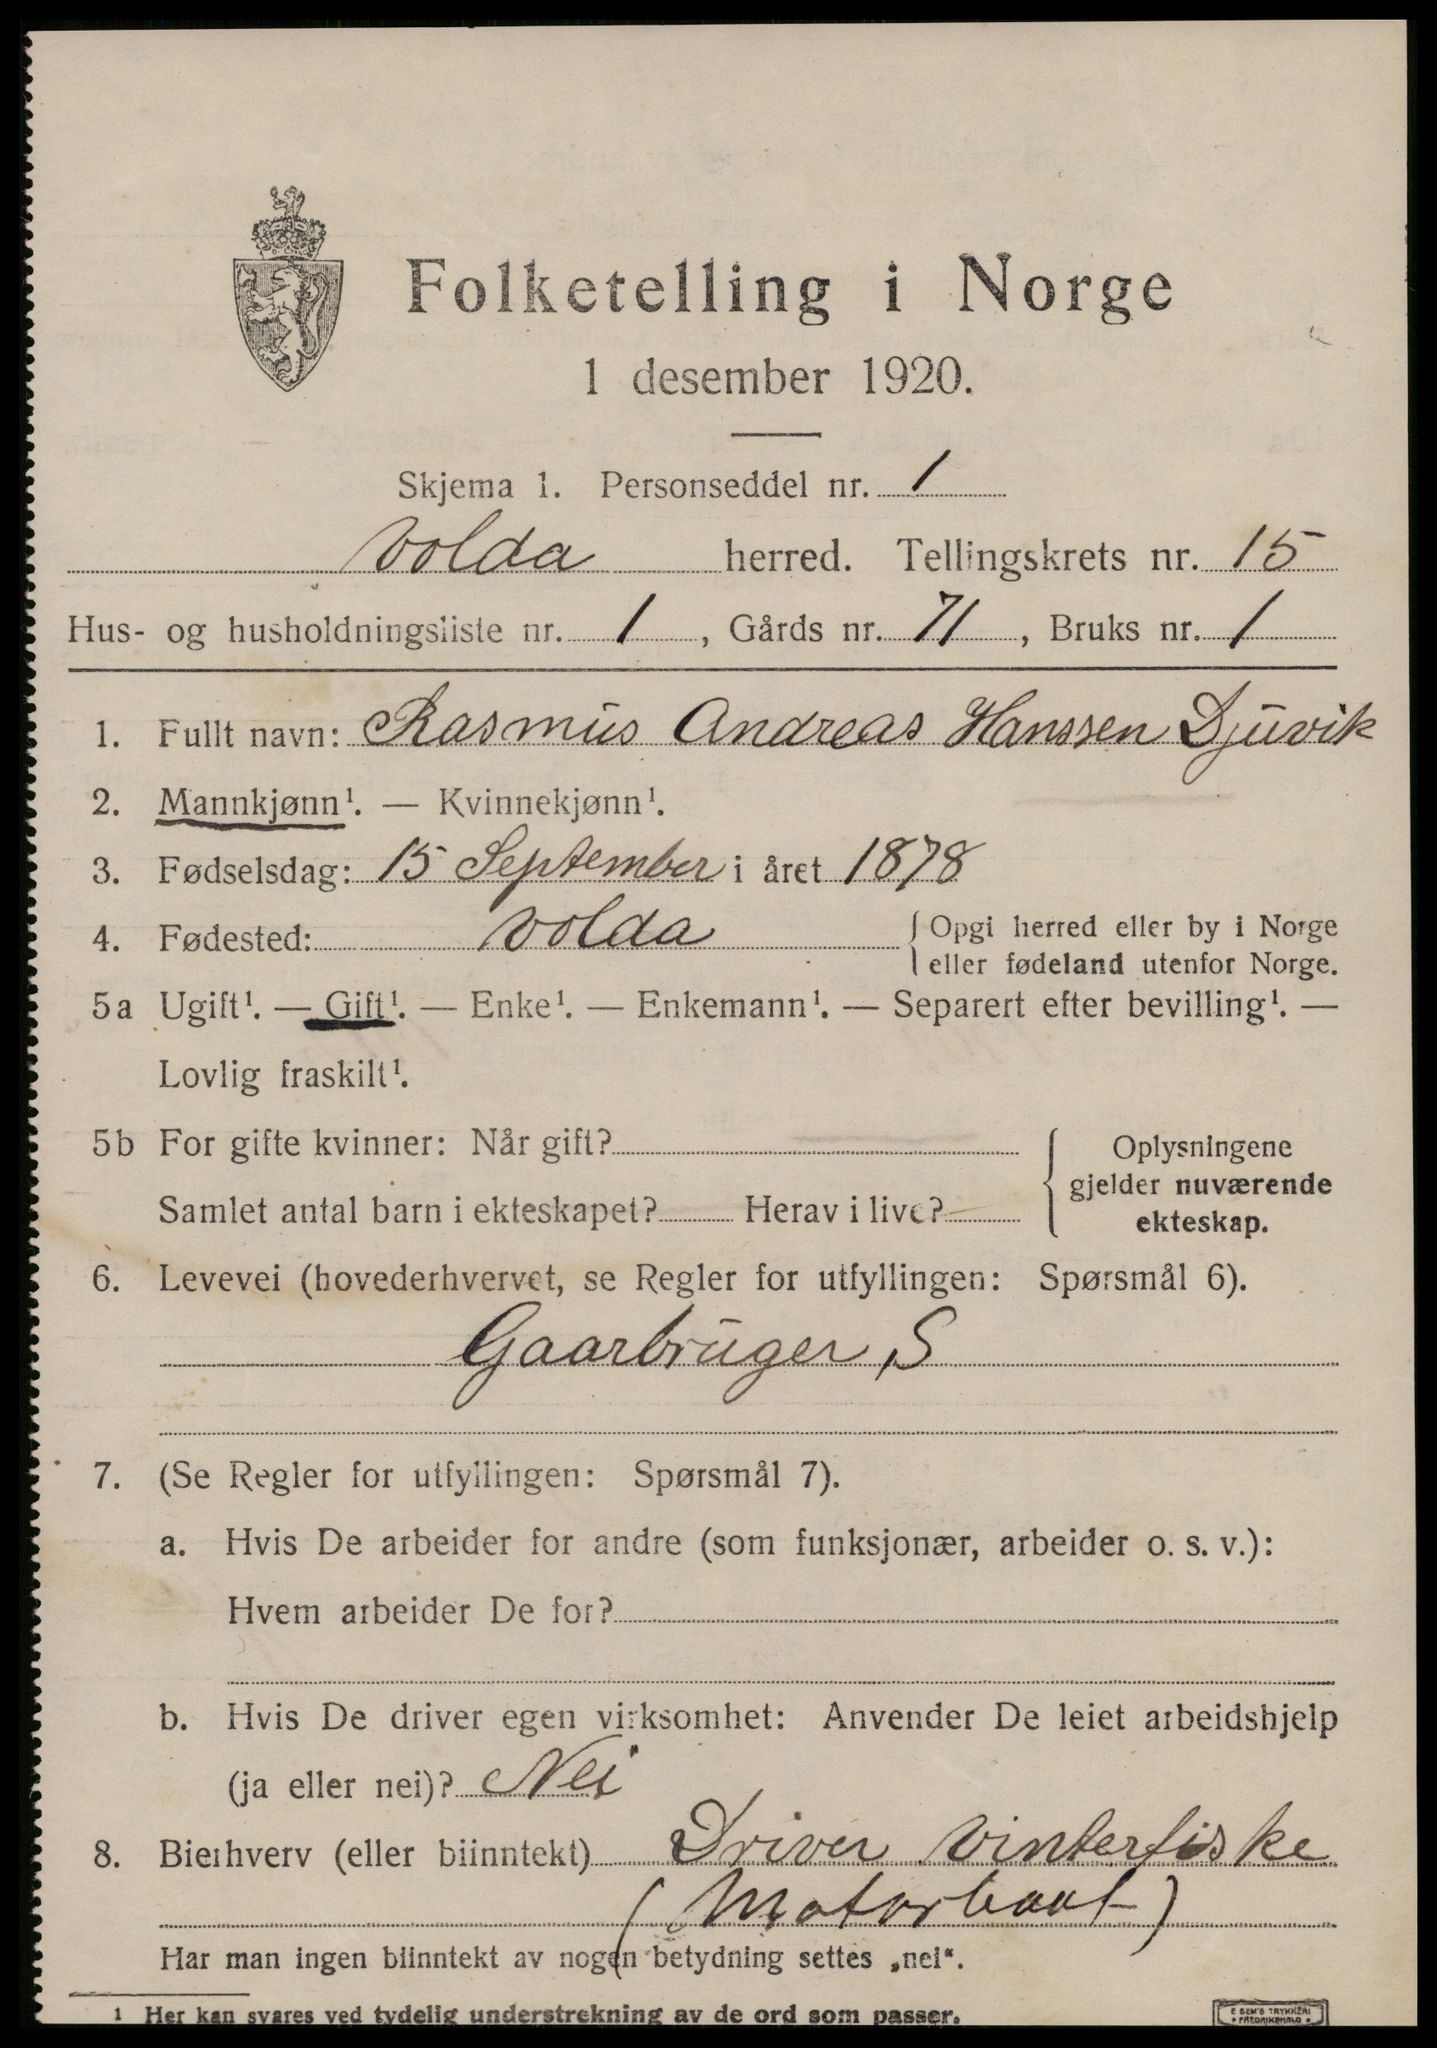 Folketelling i Norge
1 desember 1920.
Skjema 1. Personseddel nr. 1
Volda herred. Tellingskrets nr. 15
Hus- og husholdningsliste nr. 1, Gårds nr. 71, Bruks nr. 1
1. Fullt navn: Rasmus Andreas Hanssen Djuvik
2. Mannkjønn¹. — Kvinnekjønn¹.
3. Fødselsdag: 15 September i året 1878
4. Fødested: Volda { Opgi herred eller by i Norge
eller fødeland utenfor Norge.
5a Ugift¹. — Gift¹. — Enke¹. — Enkemann¹. — Separert efter bevilling¹. —
Lovlig fraskilt¹.
5b For gifte kvinner: Når gift?
Samlet antal barn i ekteskapet? Herav i live?
{ Oplysningene
gjelder nuværende
ekteskap.
6. Levevei (hovederhvervet, se Regler for utfyllingen: Spørsmål 6).
Gaarbruger, S
7. (Se Regler for utfyllingen: Spørsmål 7).
a. Hvis De arbeider for andre (som funksjonær, arbeider o. s. v.):
Hvem arbeider De for?
b. Hvis De driver egen virksomhet: Anvender De leiet arbeidshjelp
(ja eller nei)? Nei
8. Bierhverv (eller biinntekt) Driver Vinterfiske
(Motorbaat)
Har man ingen biinntekt av nogen betydning settes „nei“.
1 Her kan svares ved tydelig understrekning av de ord som passer.
E SEM'S TRYKKERI
FREDRIKSHALD